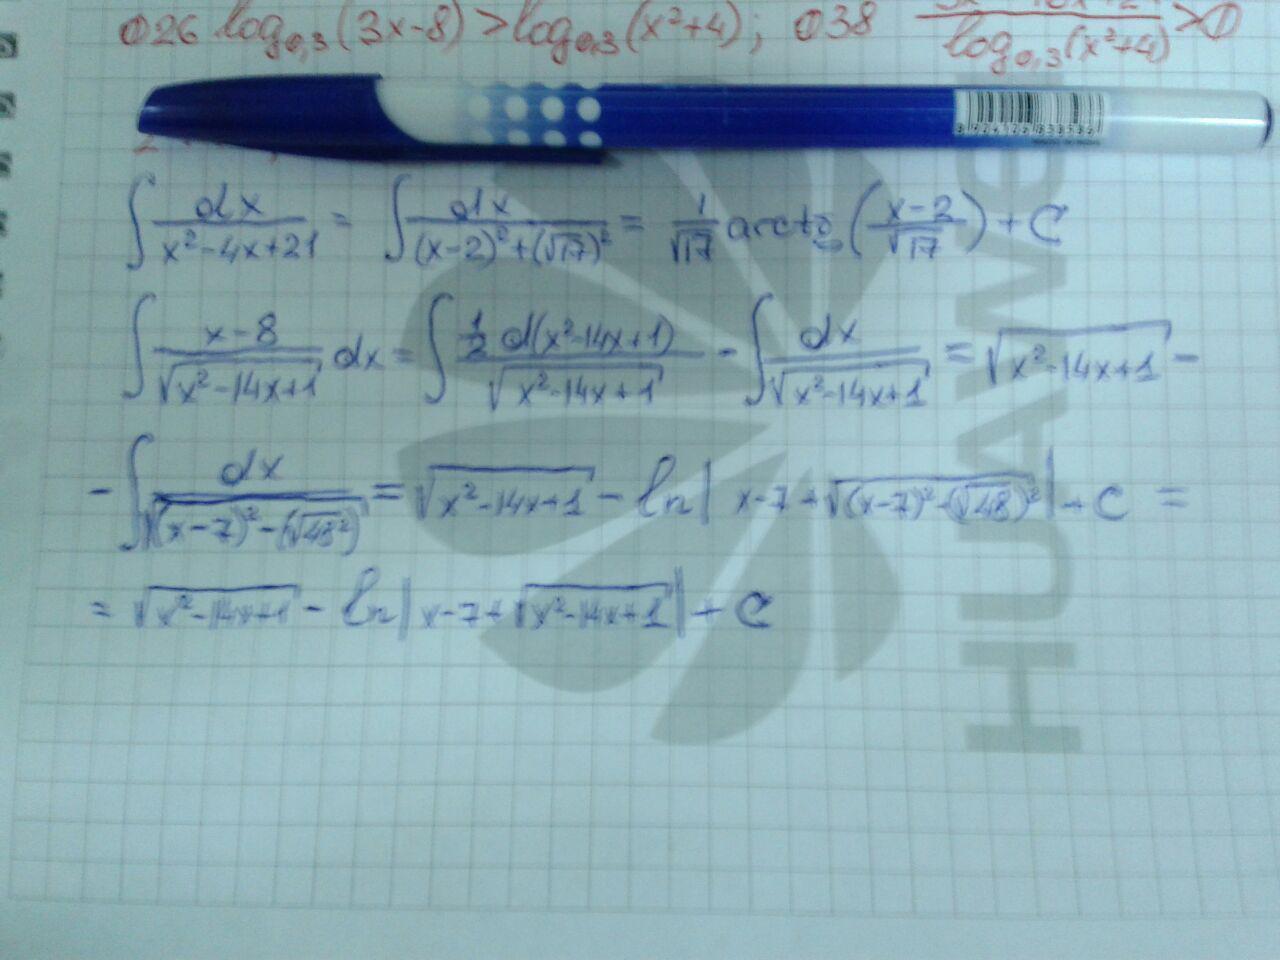 026 log₀,₃(3x-8) > log₀,₃(x²+4); 038 / log₀,₃(x²+4) > 0
∫ dx/(x²-4x+21) = ∫ dx/((x-2)²+(√17)²) = 1/√17 arctg((x-2)/√17) + C
∫ (x-8)/√(x²-14x+1) dx = ∫ ½ d(x²-14x+1)/√(x²-14x+1) - ∫ dx/√(x²-14x+1) = √(x²-14x+1) -
- ∫ dx/√((x-7)²-(√48²)) = √(x²-14x+1) - ln|x-7+√((x-7)²-(√48)²)| + C =
= √(x²-14x+1) - ln|x-7+√(x²-14x+1)| + C
HUAWE